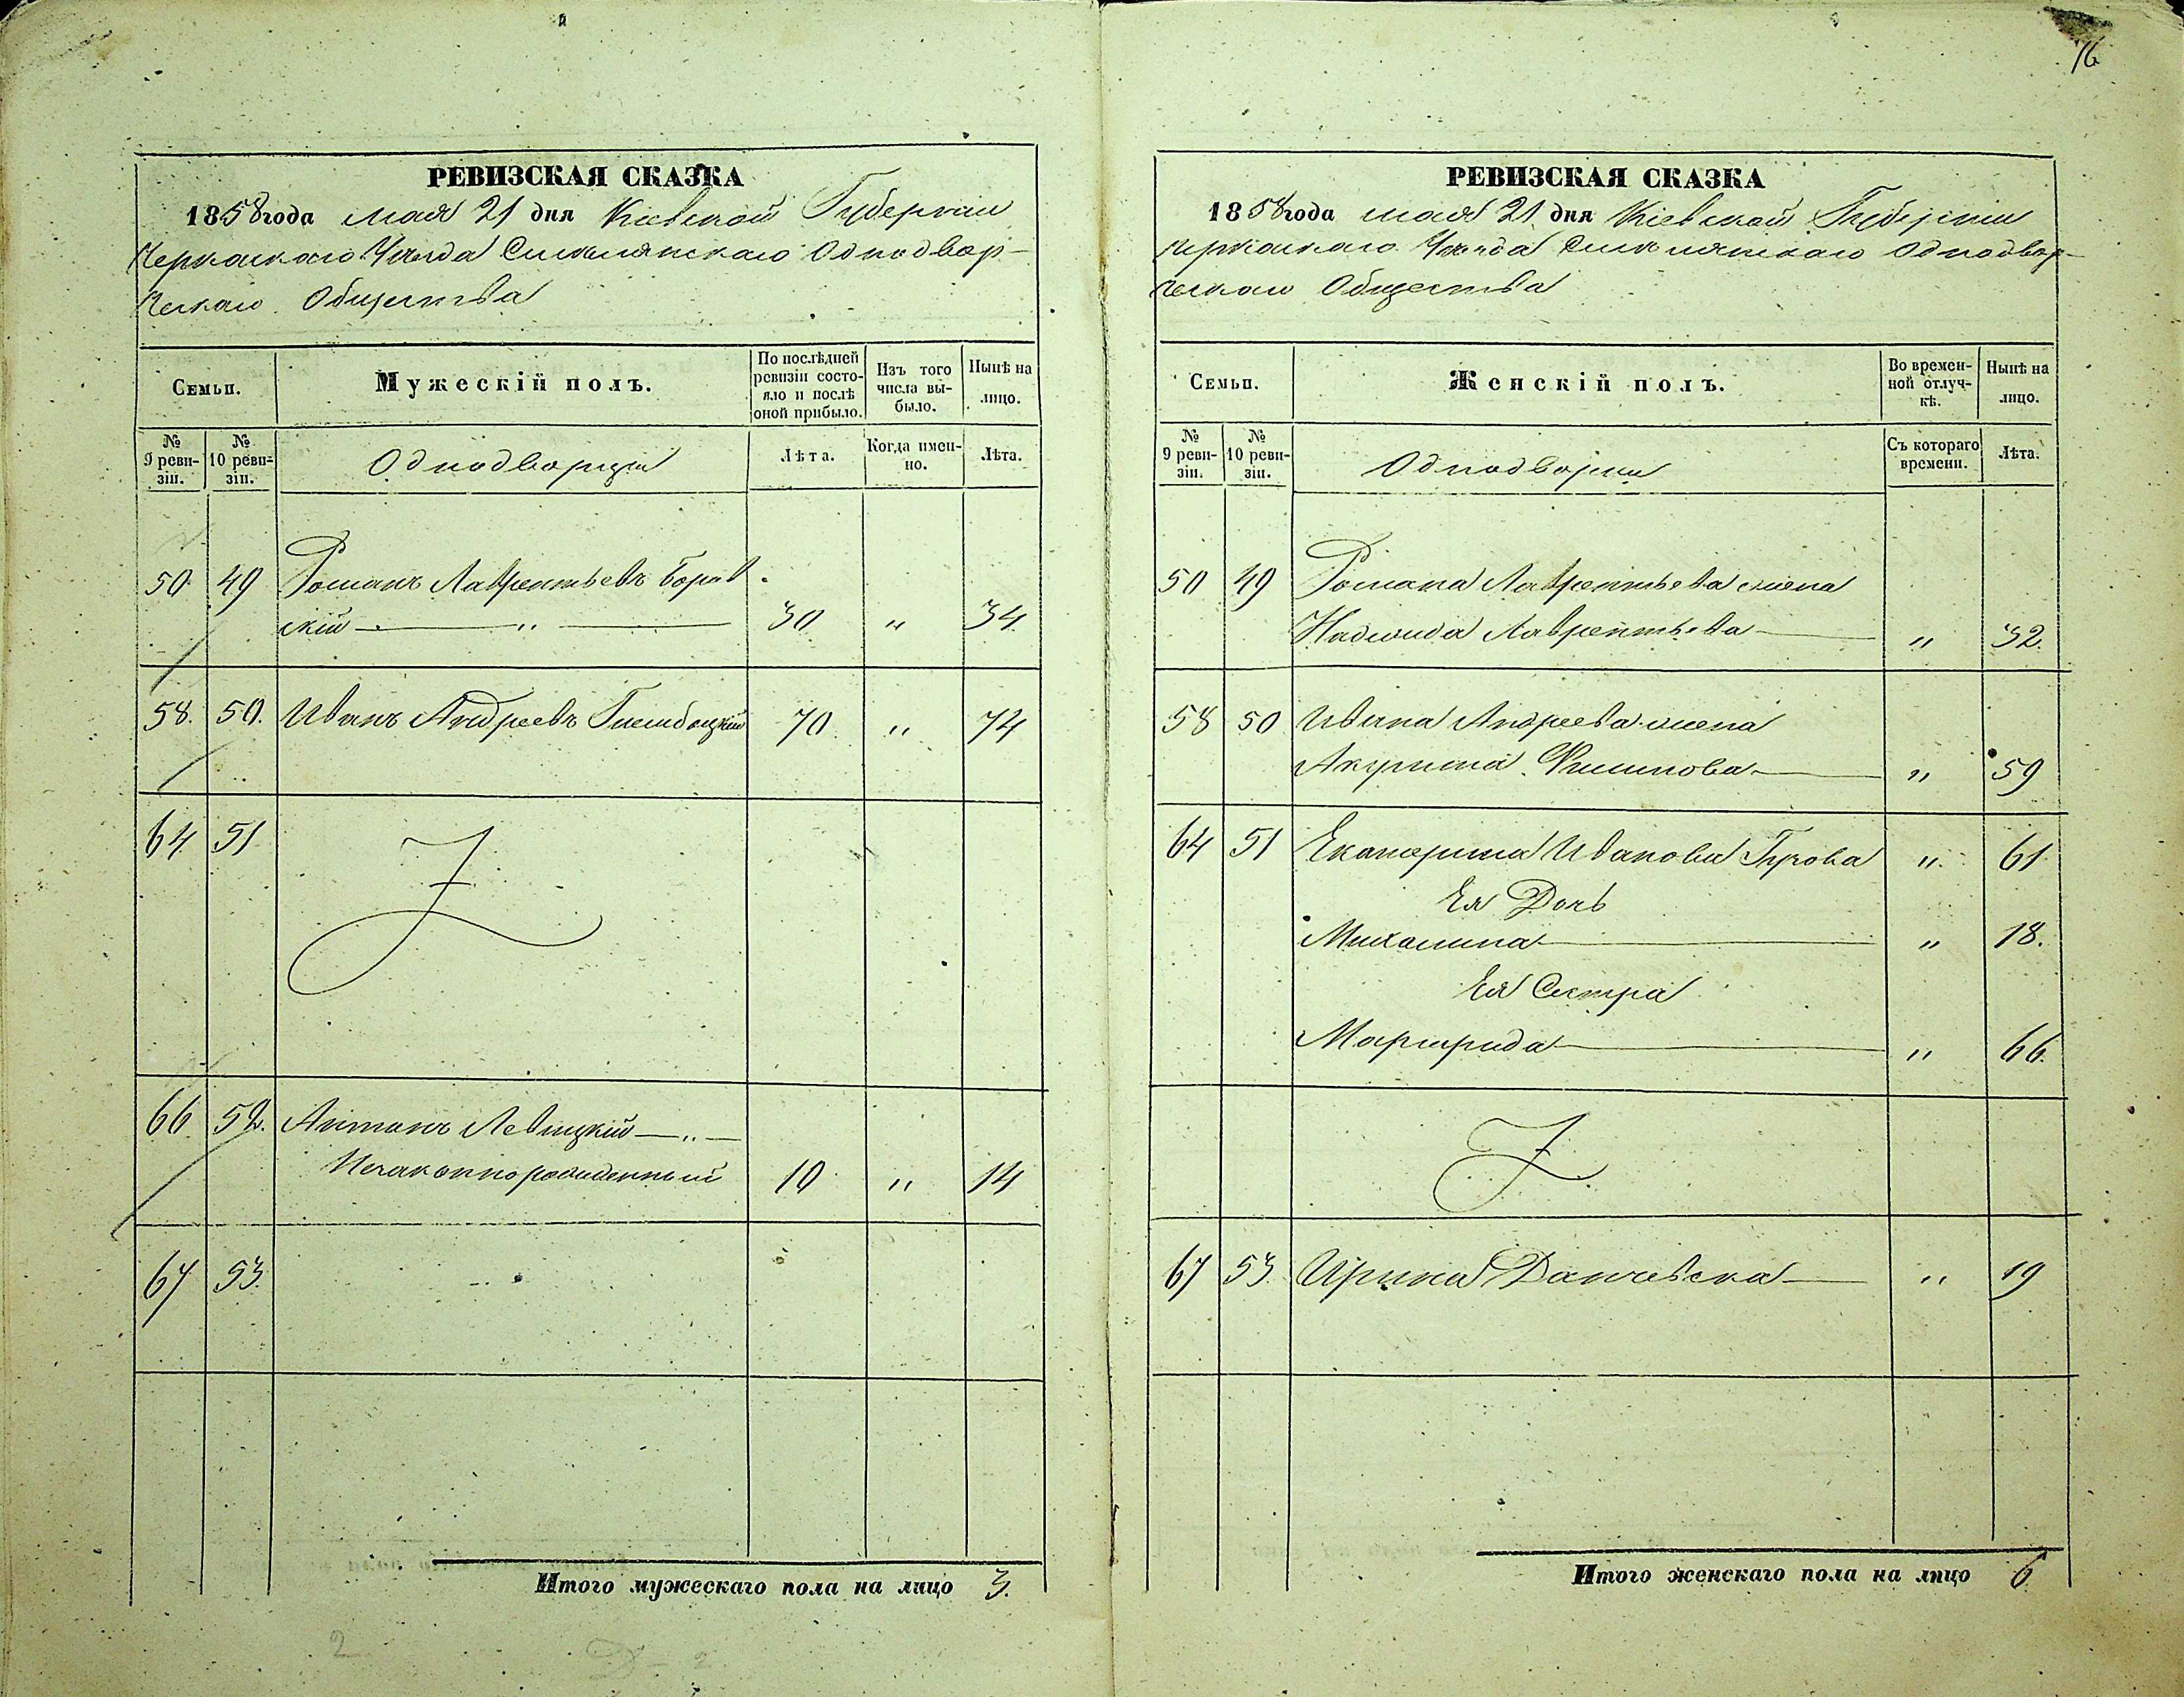 16
РЕВИЗСКАЯ СКАЗКА
1858 года мая 21 дня Кіевской Губерніи
Черкаскаго Уезда Смилянскаго Однодвор-
ческаго Общества
Семьи.
Мужескій полъ.
По послѣдней ревизіи состо-яло и послѣ оной прибыло.
Изъ того числа вы-было.
Нынѣ на лицо.
№ 9 реви-зіи.
№ 10 реви-зіи.
Однодворцы
Лѣта.
Когда имен-но.
Лѣта.
50 49 Романъ Лаврентьевъ Боров
скій — „ — 30 „ 34
58. 50. Иванъ Андреевъ 70 „ 74
64 51
66 52. Антонъ Левицкій — „ —
Незаконнорожденный 10 „ 14
67 53.
Итого мужескаго пола на лицо 3.
РЕВИЗСКАЯ СКАЗКА
1858 года мая 21 дня Кіевской Губерніи
Черкаскаго Уезда Смилянскаго Однодвор-
ческаго Общества
Семьи.
Женскій полъ.
Во времен-ной отлуч-кѣ.
Нынѣ на лицо.
№ 9 реви-зіи.
№ 10 реви-зіи.
Однодворки
Съ котораго времени.
Лѣта.
50 49 Романа Лаврентьева жена
Надежда Лаврентьева — „ 32.
58 50 Ивана Андреева жена
Акулина Филипова — „ 59
64 51 Екатерина Иванова Гурова „ 61
Ея Дочь
Михалина — „ 18.
Ея Сестра
Маргарида — „ 66.
67 53. Ирина Данчевска — „ 19
Итого женскаго пола на лицо 6